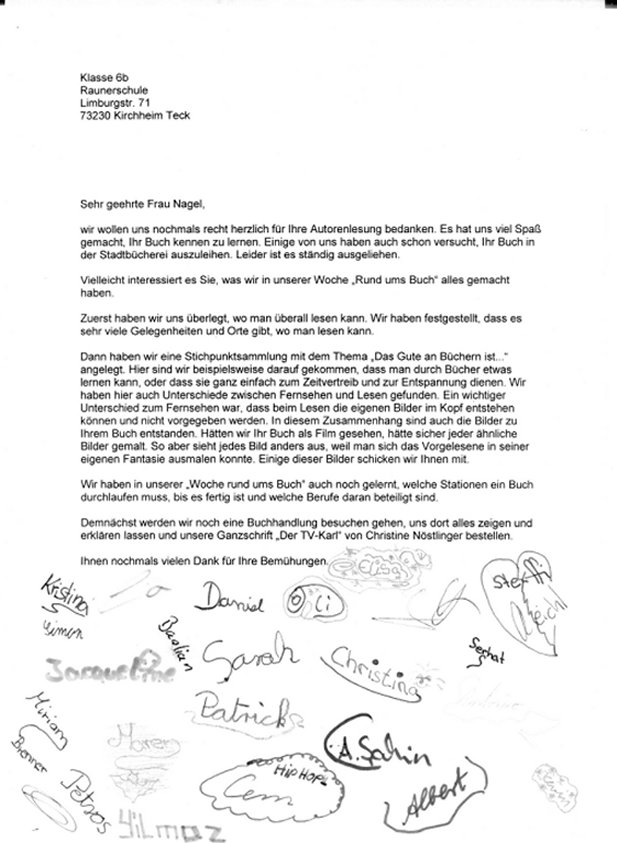 Klasse 6b
Raunerschule
Limburgstr. 71
73230 Kirchheim Teck
Sehr geehrte Frau Nagel,
wir wollen uns nochmals recht herzlich für Ihre Autorenlesung bedanken. Es hat uns viel Spaß
gemacht, Ihr Buch kennen zu lernen. Einige von uns haben auch schon versucht, Ihr Buch in
der Stadtbücherei auszuleihen. Leider ist es ständig ausgeliehen.
Vielleicht interessiert es Sie, was wir in unserer Woche „Rund ums Buch“ alles gemacht
haben.
Zuerst haben wir uns überlegt, wo man überall lesen kann. Wir haben festgestellt, dass es
sehr viele Gelegenheiten und Orte gibt, wo man lesen kann.
Dann haben wir eine Stichpunktsammlung mit dem Thema „Das Gute an Büchern ist...“
angelegt. Hier sind wir beispielsweise darauf gekommen, dass man durch Bücher etwas
lernen kann, oder dass sie ganz einfach zum Zeitvertreib und zur Entspannung dienen. Wir
haben hier auch Unterschiede zwischen Fernsehen und Lesen gefunden. Ein wichtiger
Unterschied zum Fernsehen war, dass beim Lesen die eigenen Bilder im Kopf entstehen
können und nicht vorgegeben werden. In diesem Zusammenhang sind auch die Bilder zu
Ihrem Buch entstanden. Hätten wir Ihr Buch als Film gesehen, hätte sicher jeder ähnliche
Bilder gemalt. So aber sieht jedes Bild anders aus, weil man sich das Vorgelesene in seiner
eigenen Fantasie ausmalen konnte. Einige dieser Bilder schicken wir Ihnen mit.
Wir haben in unserer „Woche rund ums Buch“ auch noch gelernt, welche Stationen ein Buch
durchlaufen muss, bis es fertig ist und welche Berufe daran beteiligt sind.
Demnächst werden wir noch eine Buchhandlung besuchen gehen, uns dort alles zeigen und
erklären lassen und unsere Ganzschrift „Der TV-Karl“ von Christine Nöstlinger bestellen.
Ihnen nochmals vielen Dank für Ihre Bemühungen.
Elisa
Kristina
Daniel
Oli
Steffi
Simon
Bastian
Sarah
Christina
Serhat
Jacqueline
Patrick
Miriam
Brenner
Maren
A. Sahin
HipHop
Cem
Albert
Petros
Yilmaz